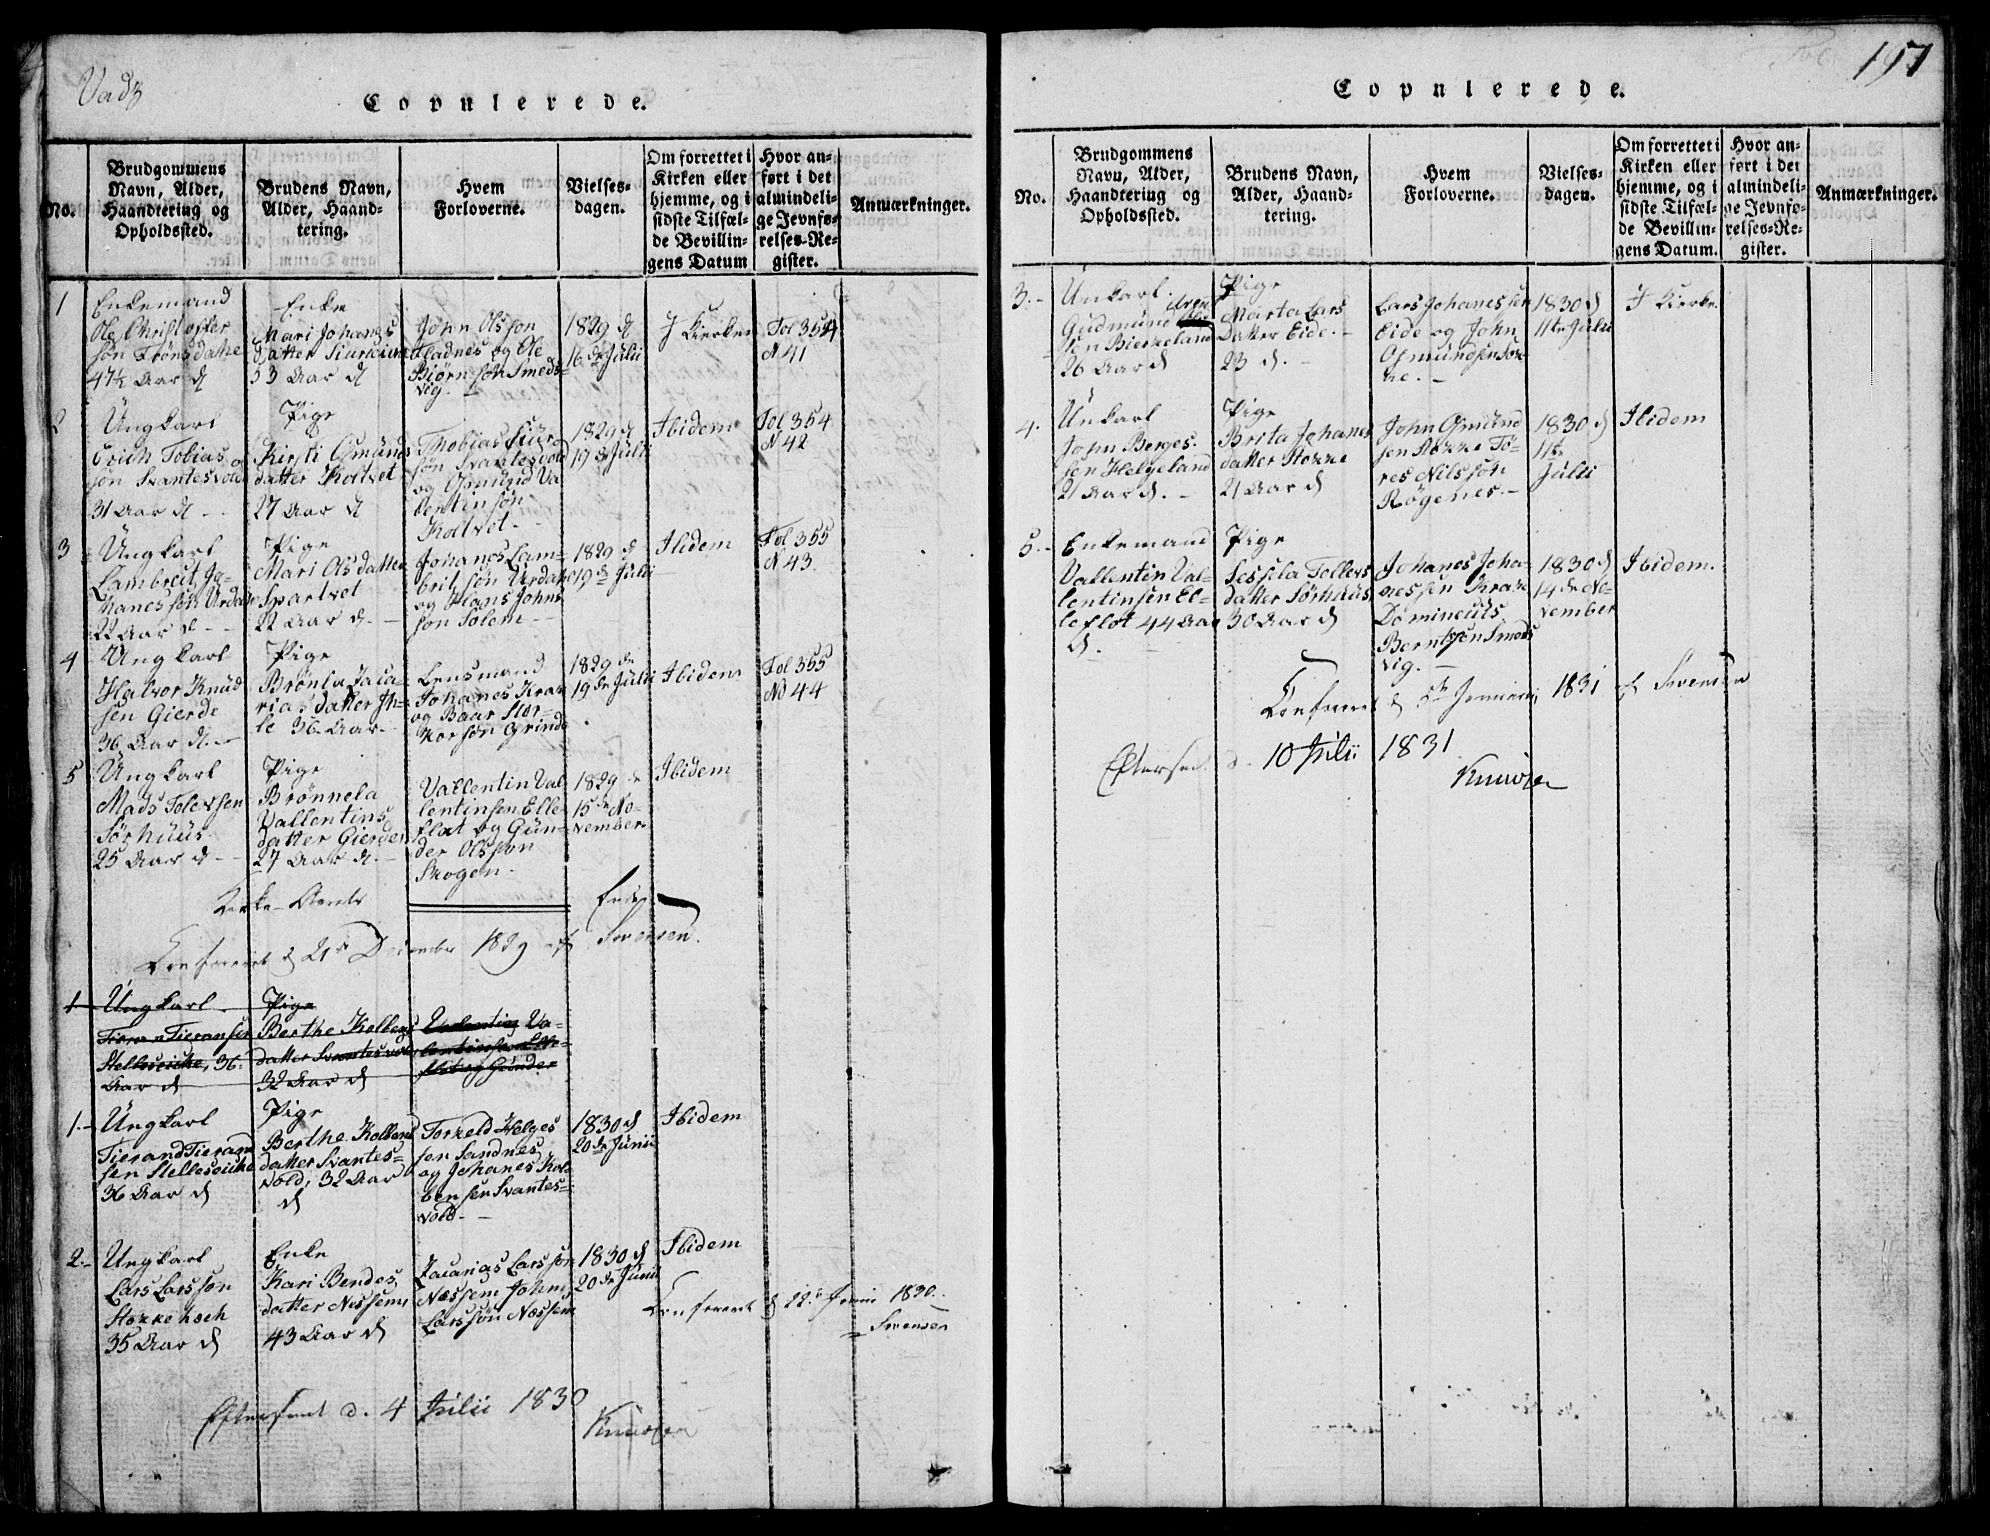 Vads
Copulerede.
No.
Brudgommens
Navn, Alder,
Haandtering og
Opholdssted.
Brudens Navn,
Alder, Haand-
tering.
Hvem
Forloverne.
Vielses-
dagen.
Om forrettet i
Kirken eller
hjemme, og i
sidste Tilfæl-
de Bevillin-
gens Datum
Hvor an-
ført i det
almindeli-
ge Jevnfø-
relses-Re-
gister.
Anmærkninger.
1
Enkemand
Ole Christoffer
søn Trønsdahe
47½ Aar d
Enke
Mari Johanes
datter
53 Aar d
John Olsson
Fladnes og Ole
Biørnsøn Smeds-
vig.
1829 d
16de Julii
J Kierken
Fol 354
N 41
2
Ungkarl
Erich Tobias
søn Svantesvold
31 Aar d
Pige
Kirsti Osmunds
datter Koltvet
27 Aar d
Thobias Siur
søn Svantesvold
og Osmund Va
lentinsøn
Koltvet.
1829 d
19 de Julii
Ibidem
Fol 354
N 42
3
Ungkarl
Lambreit Jo-
hanessøn Urdahe
22 Aar d
Pige
Mari Olsdatter
Svartvet
22 Aar d.
Johanes Lam-
britsøn Urdahe
og Hans Johns
søn Solem
1829 d
19 de Julii
Ibidem
Fol 355
N 43.
4
Ungkarl
Halvor Knud
sen Gierde
36 Aar d.
Pige
Brønla Jaca-
rias datter Ih-
le 36 Aar
Lensmand
Johanes Krax
og Baar Stor-
Korsøn Grinde
1829 de
19 de Julii
Ibidem
Fol 355
No 44
5
Ungkarl
Mads Tolevsen
Sørhuus
25 Aar d
Pige
Brønnela
Vallentins
datter Gierde
27 Aar d.
Vallentin Val
lentinsen Elle-
flat og Gun-
der Olsson
Skogen.
1829 de
15 de No-
vember
Ibidem
Kirke-Aarets Ende
Confereret d 21de December 1829 af Svensen.
1
Ungkarl
Tieran Tieransen
Stelleseiche, 36
Aar d
Pige
Berthe Kolbens
datter Svantesvold
32 Aar d
Valentin Va-
lentinsen Elle-
flat og Gunder
1.
Ungkarl
Tierand Tieram
sen Stelleseiche
36 Aar d
Pige
Berthe Kolbens
datter Svantes-
vold, 32 Aar
d
Torkeld Helges
sen Sandnes
og Johanes Kol-
bensen Svantes-
vold.
1830 d
20 de Junii
Ibidem
2.
Ungkarl
Lars Larsson
Stokke
35 Aar d
Enke
Kari Bendes
datter Nessem
43 Aar d
Jacarias Larsson
Næssem John
Larsson Næssem
1830 d
20 de Junii
Ibidem
Confereret d 22de Junii 1830.
Svensen
Efterseet d. 4 Julii 1830
Knudsen
197
Copulerede.
No.
Brudgommens
Navn, Alder,
Haandtering og
Opholdssted.
Brudens Navn,
Alder, Haand-
tering.
Hvem
Forloverne.
Vielses-
dagen.
Om forrettet i
Kirken eller
hjemme, og i
sidste Tilfæl-
de Bevillin-
gens Datum.
Hvor an-
ført i det
almindeli-
ge Jevnfø-
relses-Re-
gister.
Anmærkninger.
3.
Unkarl.
Gudmund
sen Bierkeland
26 Aar d
Pige
Marta Lars
datter Eide.
23 d.
Lars Johanessen
Eide og John
Osmundsen Sto-
ke.
1830 d
11te Julii
J Kierke
4.
Unkarl
John Berges
sen Helgeland
21 Aar d.
Pige
Brita Johanes
datter Stokke
21 Aar d
John Osmund
sen Stokke Tø-
res Nilsson
Røgenes.
1830 d
11te
Julii
Ibidem
5.
Enkemand
Vallentin Val-
lentinsen El-
leflot 44 Aar
d.
Pige
Sessela Tollevs
datter Sørhuus
30 Aar d
Johanes Joha-
nessen Kraxe
Domineuts
Berntsen Smeds
vig.
1830 d
14 de No-
vember
Ibidem.
Confereret d 5te Januari 1831 af Svensen
Efterseet d. 10 Julii 1831
Knudsen